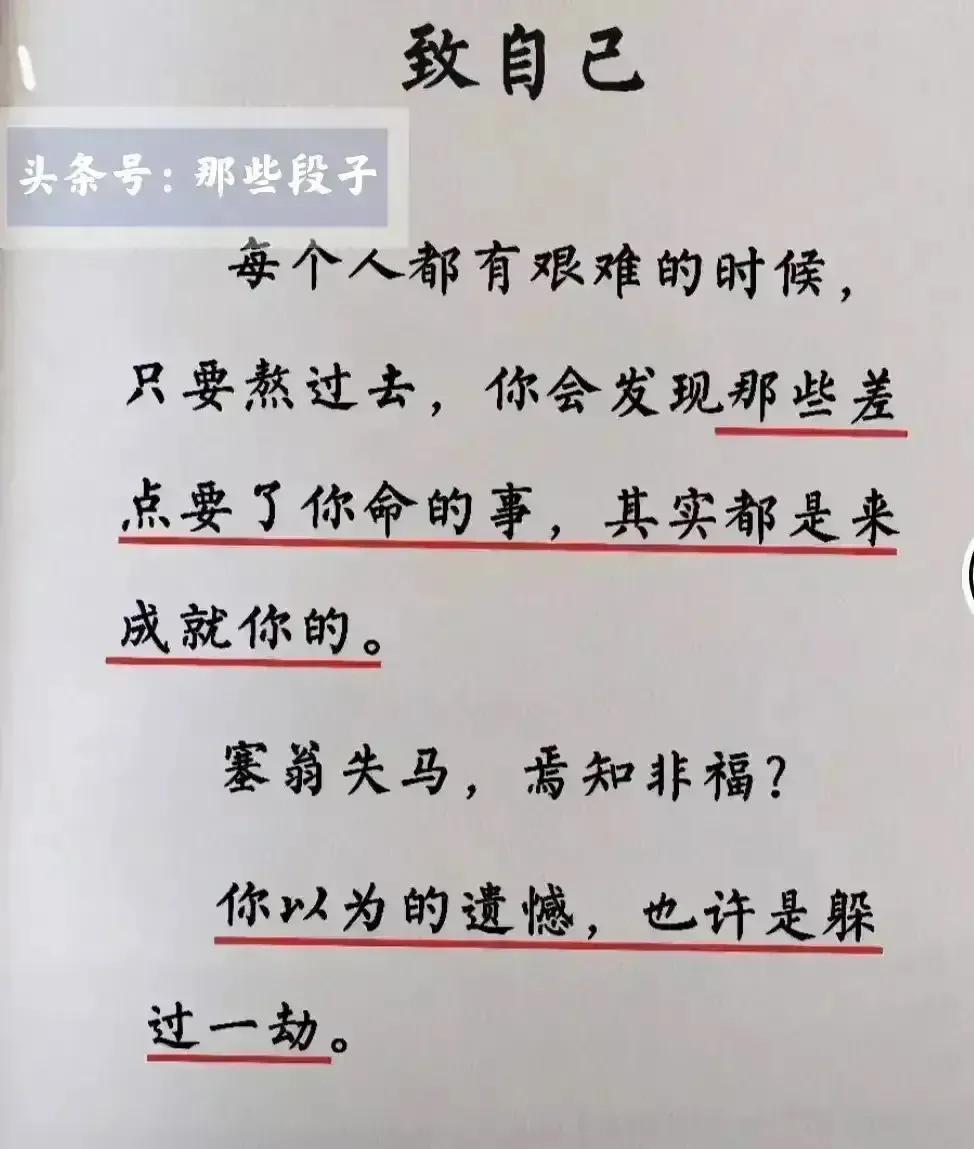 致自己
头条号：那些段子
每个人都有艰难的时候，
只要熬过去，你会发现那些差
点要了你命的事，其实都是来
成就你的。
塞翁失马，焉知非福？
你以为的遗憾，也许是躲
过一劫。